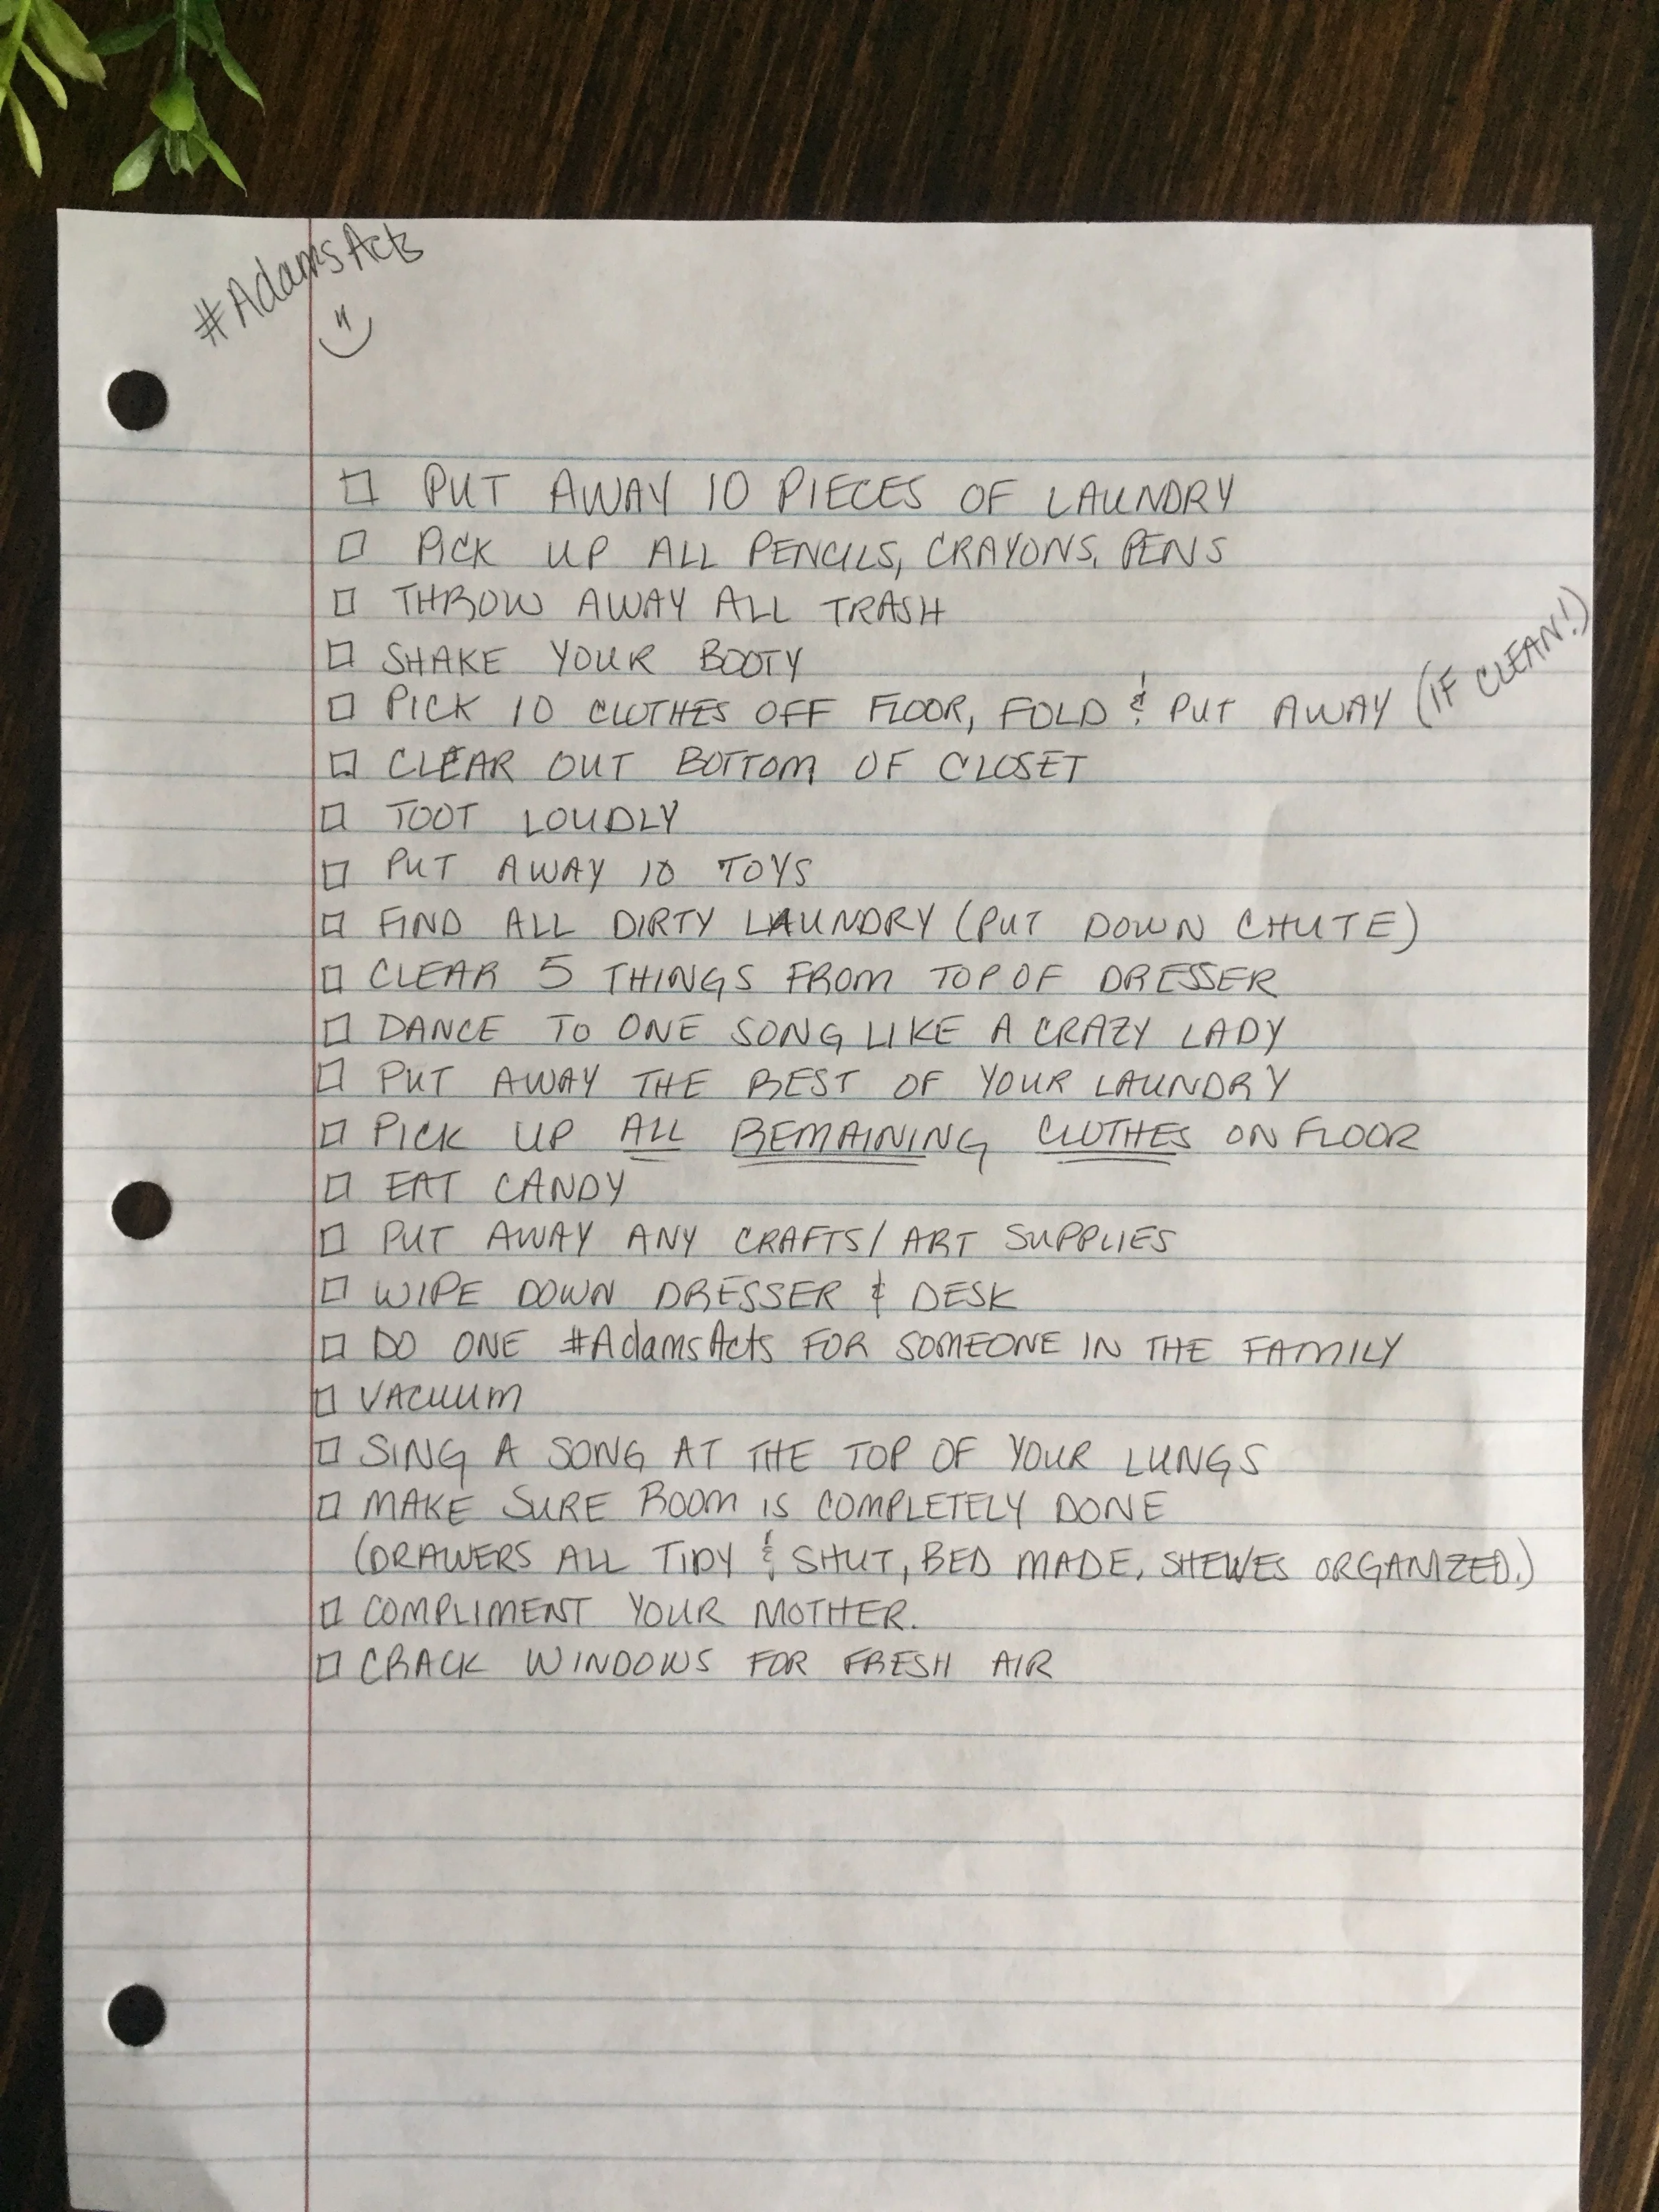 #AdamsActs
☐ PUT AWAY 10 PIECES OF LAUNDRY
☐ PICK UP ALL PENCILS, CRAYONS, PENS
☐ THROW AWAY ALL TRASH
☐ SHAKE YOUR BOOTY
☐ PICK 10 CLOTHES OFF FLOOR, FOLD & PUT AWAY (IF CLEAN!)
☐ CLEAR OUT BOTTOM OF CLOSET
☐ TOOT LOUDLY
☐ PUT AWAY 10 TOYS
☐ FIND ALL DIRTY LAUNDRY (PUT DOWN CHUTE)
☐ CLEAR 5 THINGS FROM TOP OF DRESSER
☐ DANCE TO ONE SONG LIKE A CRAZY LADY
☐ PUT AWAY THE REST OF YOUR LAUNDRY
☐ PICK UP ALL REMAINING CLOTHES ON FLOOR
☐ EAT CANDY
☐ PUT AWAY ANY CRAFTS/ART SUPPLIES
☐ WIPE DOWN DRESSER & DESK
☐ DO ONE #AdamsActs FOR SOMEONE IN THE FAMILY
☐ VACUUM
☐ SING A SONG AT THE TOP OF YOUR LUNGS
☐ MAKE SURE ROOM IS COMPLETELY DONE
(DRAWERS ALL TIDY & SHUT, BED MADE, SHELVES ORGANIZED.)
☐ COMPLIMENT YOUR MOTHER.
☐ CRACK WINDOWS FOR FRESH AIR